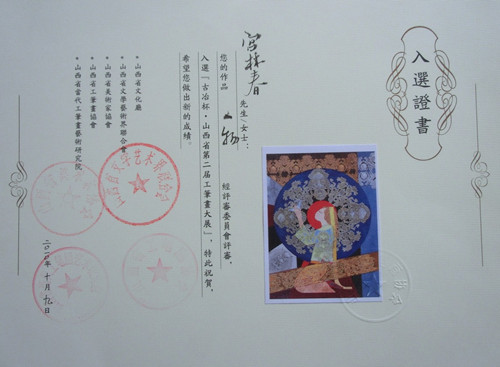 入選證書
宫林春 先生/女士：
您的作品 人物 經評審委員會評審，
入選「古冶杯·山西省第二屆工筆畫大展」，特此祝賀，
希望您做出新的成績。
·山西省文化廳
·山西省文學藝術界聯合會
·山西省美術家協會
·山西省工筆畫協會
·山西省當代工筆畫藝術研究院
二〇一〇年十月九日
山西省文学艺术界联合会